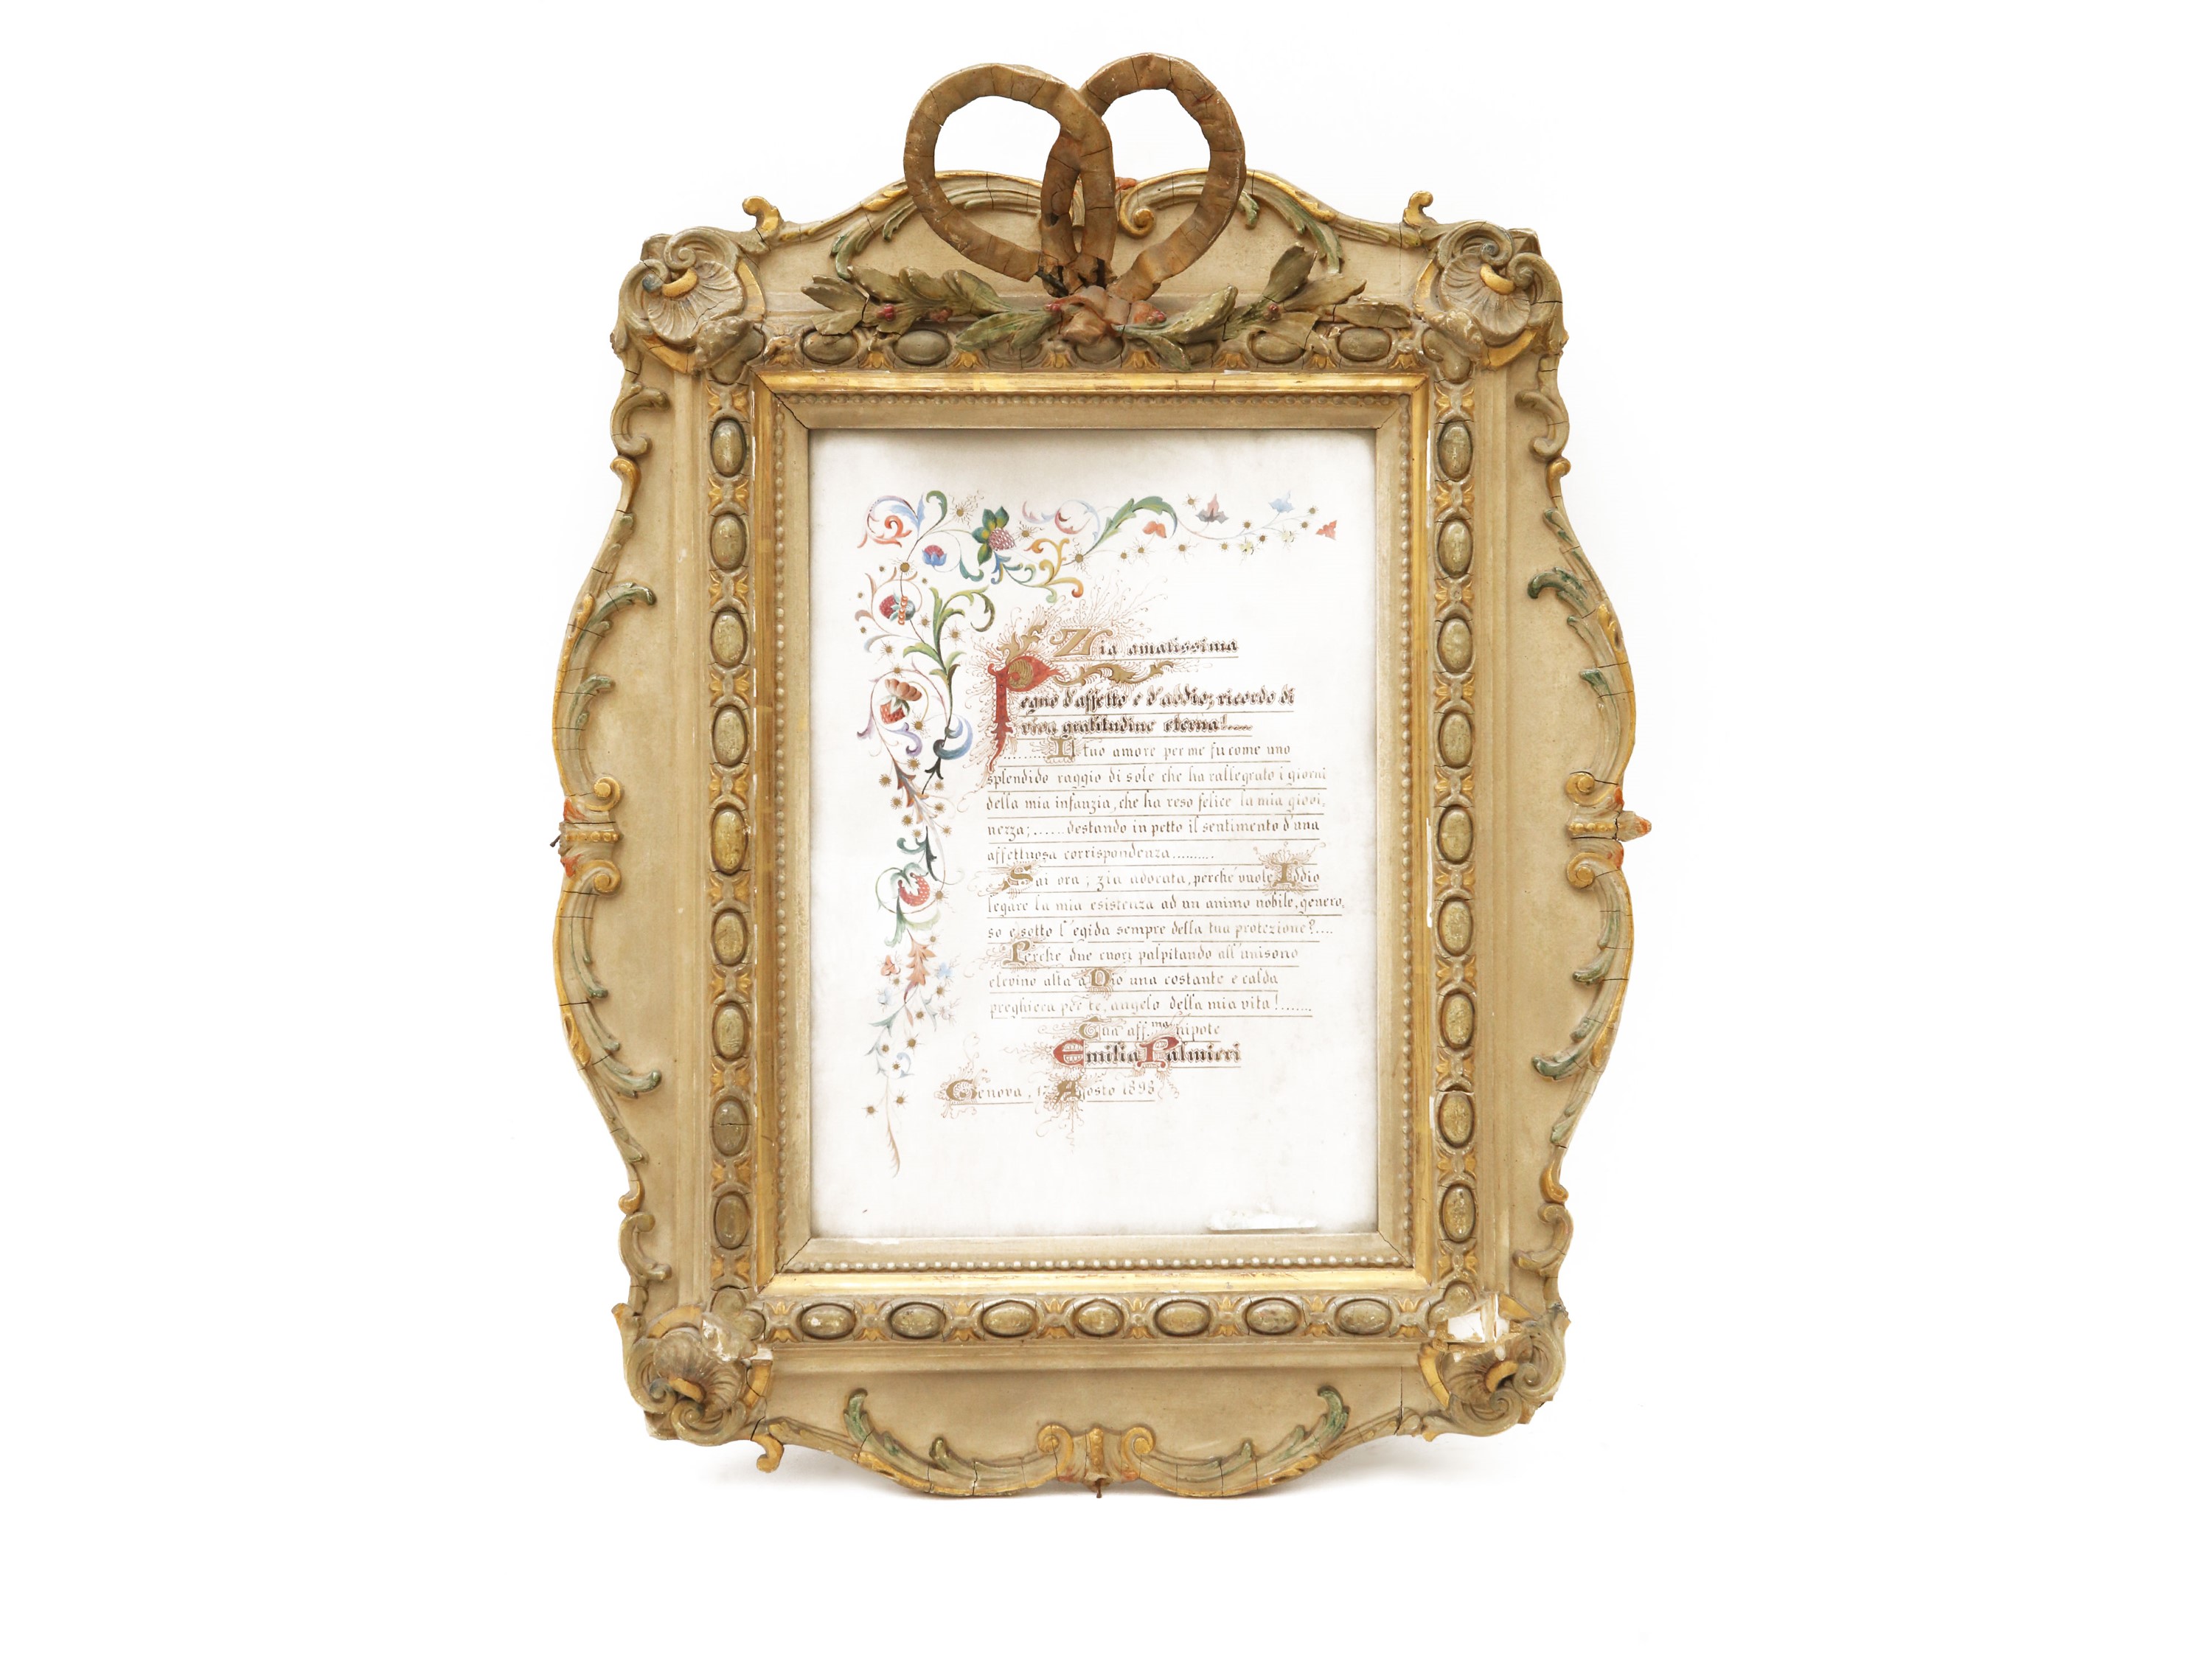 Zia amatissima
Pegno d'affetto e d'addio; ricordo di
viva gratitudine eterna!.....
.........Il tuo amore per me fu come uno
splendido raggio di sole che ha rallegrato i giorni
della mia infanzia, che ha reso felice la mia giovi,
nezza;......destando in petto il sentimento d'una
affettuosa corrispondenza..........
Sai ora; zia adorata, perchè vuole Iddio
legare la mia esistenza ad un animo nobile, genero,
so e sotto l'egida sempre della tua protezione?....
Perchè due cuori palpitando all'unisono
elevino alta a Dio una costante e calda
preghiera per te, angelo della mia vita!.......
Tua aff.ma nipote
Emilia Palmieri
Genova, Agosto 1898